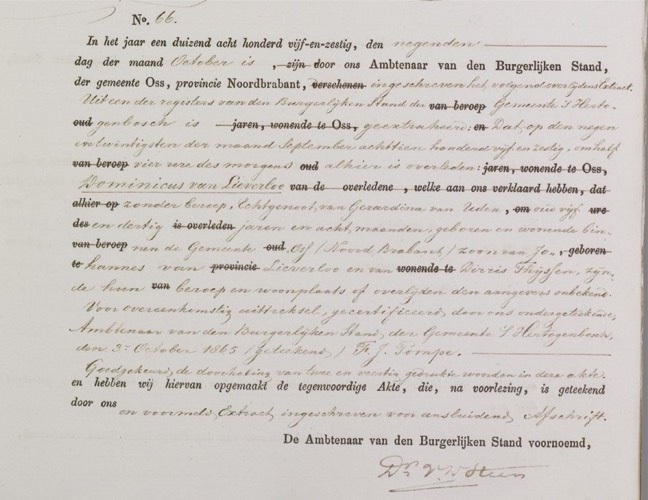 No. 66.
In het jaar een duizend acht honderd vijf-en-zestig, den negenden
dag der maand October is, zijn door ons Ambtenaar van den Burgerlijken Stand,
der gemeente Oss, provincie Noordbrabant, verschenen ingeschreven het volgend overlijdens Extract.
Uit een der registers van den Burgerlijken Stand der van beroep Gemeente 'S Herto-
oud genbosch is jaren, wonende te Oss, geextraheerd: en Dat, op den negen
en twintigsten der maand September achttien honderd vijf en zestig, om half
van beroep vier ure des morgens oud alhier is overleden: jaren, wonende te Oss,
Dominicus van Lieverloo van de overledene, welke aan ons verklaard hebben, dat
alhier op zonder beroep, Echtgenoot van Gerardina van Uden, om oud vijf ure
des en dertig is overleden jaren en acht maanden, geboren en wonende bin-
van beroep nen de Gemeente oud Oss (Noord Brabant) zoon van Jo-, geboren
te hannes van provincie Lieverloo en van wonende te Dirris Thijssen, zijn-
de hun van beroep en woonplaats of overlijden den aangevers onbekend.
Voor overeenkomstig uittreksel, gecertificeerd door ons ondergeteekende
Ambtenaar van den Burgerlijken Stand, der Gemeente 'S Hertogenbosch,
den 3n October 1865 (geteekend) Fr. J. Pompe.
Goedgekeurd, de doorhaling van twee en veertig gedrukte woorden in deze akte.
en hebben wij hiervan opgemaakt de tegenwoordige Akte, die, na voorlezing, is geteekend
door ons en voormeld Extract ingeschreven voor ensluidend Afschrift.
De Ambtenaar van den Burgerlijken Stand voornoemd,